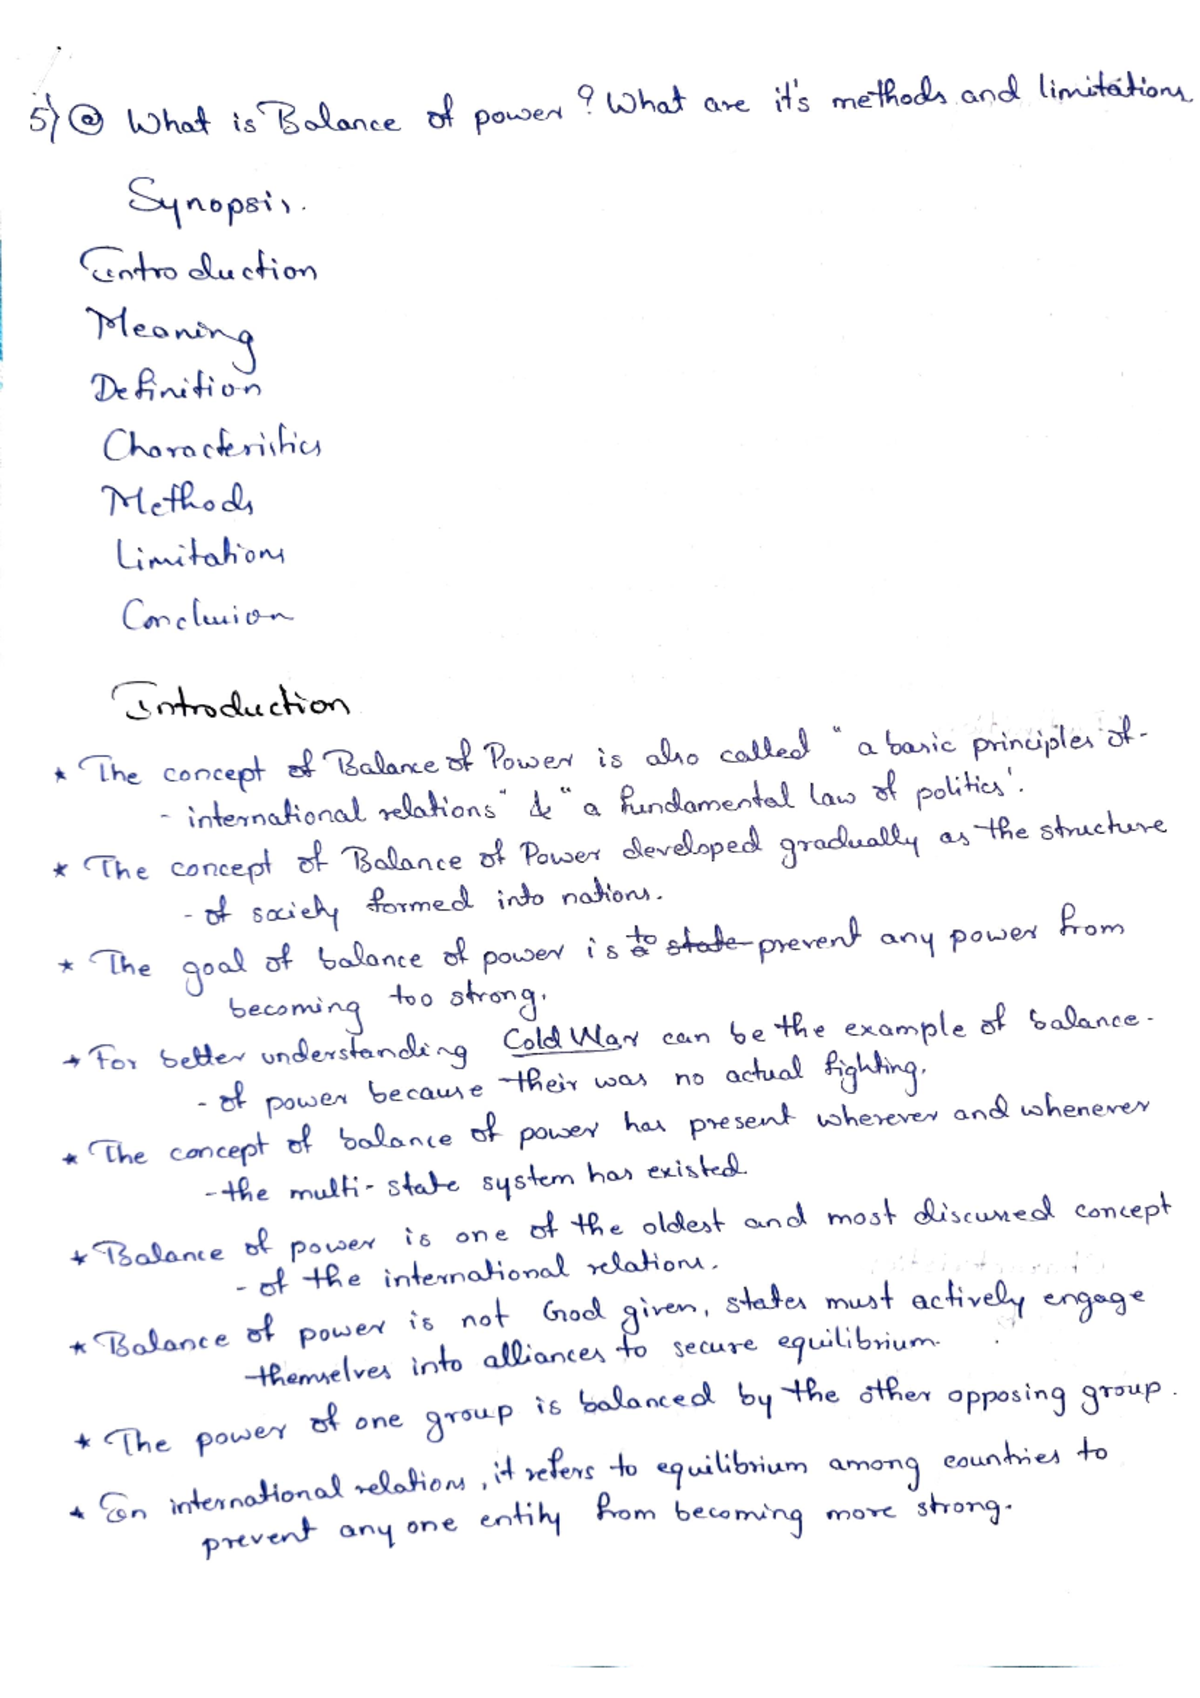 5) a What is Balance of power? What are it's methods and limitations.
Synopsis.
Introduction
Meaning
Definition
Characteristics
Methods
Limitations
Conclusion
Introduction
* The concept of Balance of Power is also called "a basic principles of-
- international relations" & "a fundamental law of politics'.
* The concept of Balance of Power developed gradually as the structure
- of society formed into nations.
* The goal of balance of power is to a state prevent any power from
becoming too strong.
* For better understanding Cold War can be the example of balance-
- of power because their was no actual fighting.
* The concept of balance of power has present wherever and whenever
- the multi-state system has existed.
* Balance of power is one of the oldest and most discussed concept
- of the international relations.
* Balance of power is not God given, states must actively engage
themselves into alliances to secure equilibrium.
* The power of one group is balanced by the other opposing group.
* In international relations, it refers to equilibrium among countries to
prevent any one entity from becoming more strong.